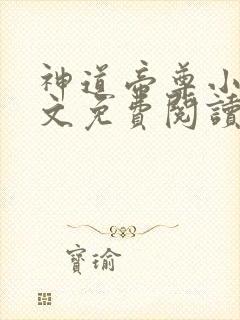 神道帝尊小
文免費閱讀
寶瑜